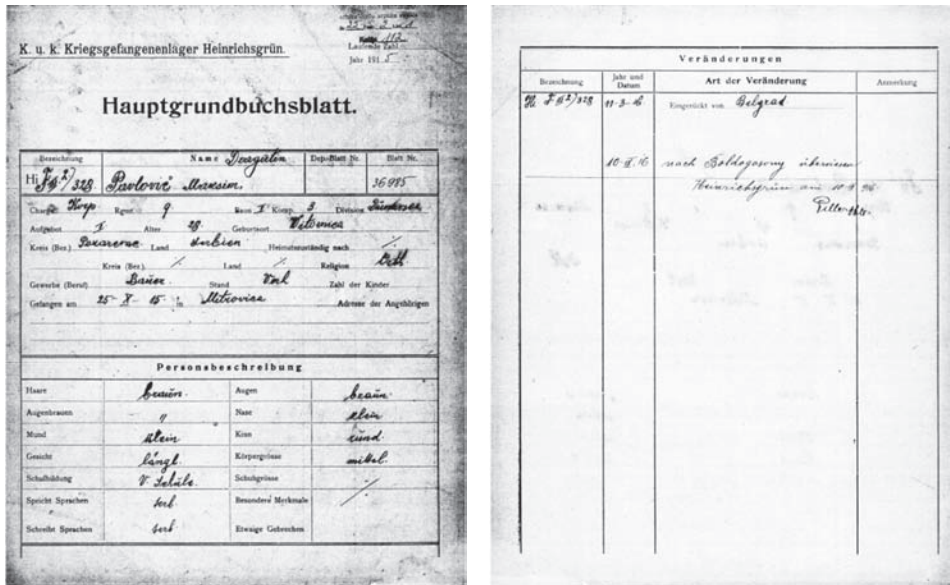 K. u. k. Kriegsgefangenenlager Heinrichsgrün.
Laufende Zahl
Jahr 1915
Hauptgrundbuchsblatt.
Bezeichnung Name Dragutin Dep-Blatt Nr. Blatt Nr.
Hi 2)/328 Pavlović Maksim. 36985
Charge Korp Rgmt. 9 Baon I Komp. 3 Division
Aufgebot I Alter 28 Geburtsort Vitovnica
Kreis (Bez.) Pozarevac Land Serbien Heimatszuständig nach
Kreis (Bez.) Land Religion Orth
Gewerbe (Beruf) Bauer Stand Verh Zahl der Kinder
Gefangen am 25 X 15 in Mitrovica Adresse der Angehörigen
Personsbeschreibung
Haare braun. Augen braun.
Augenbrauen " Nase klein
Mund klein Kinn rund.
Gesicht längl. Körpergrösse mittel.
Schulbildung V. Schule. Schuhgrösse
Spricht Sprachen serb Besondere Merkmale
Schreibt Sprachen serb Etwaige Gebrechen
Veränderungen
Bezeichnung Jahr und Datum Art der Veränderung Anmerkung
2)/328 11-3-16 Eingerückt von Belgrad
nach Boldogasszony überwiesen
Heinrichsgrün am